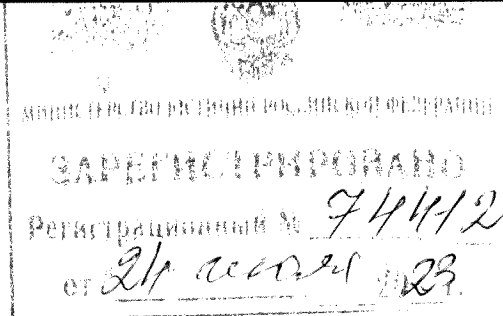 МИНИСТЕРСТВО ЮСТИЦИИ РОССИЙСКОЙ ФЕДЕРАЦИИ
ЗАРЕГИСТРИРОВАНО
Регистрационный № 74412
от "24" июля 2023 г.